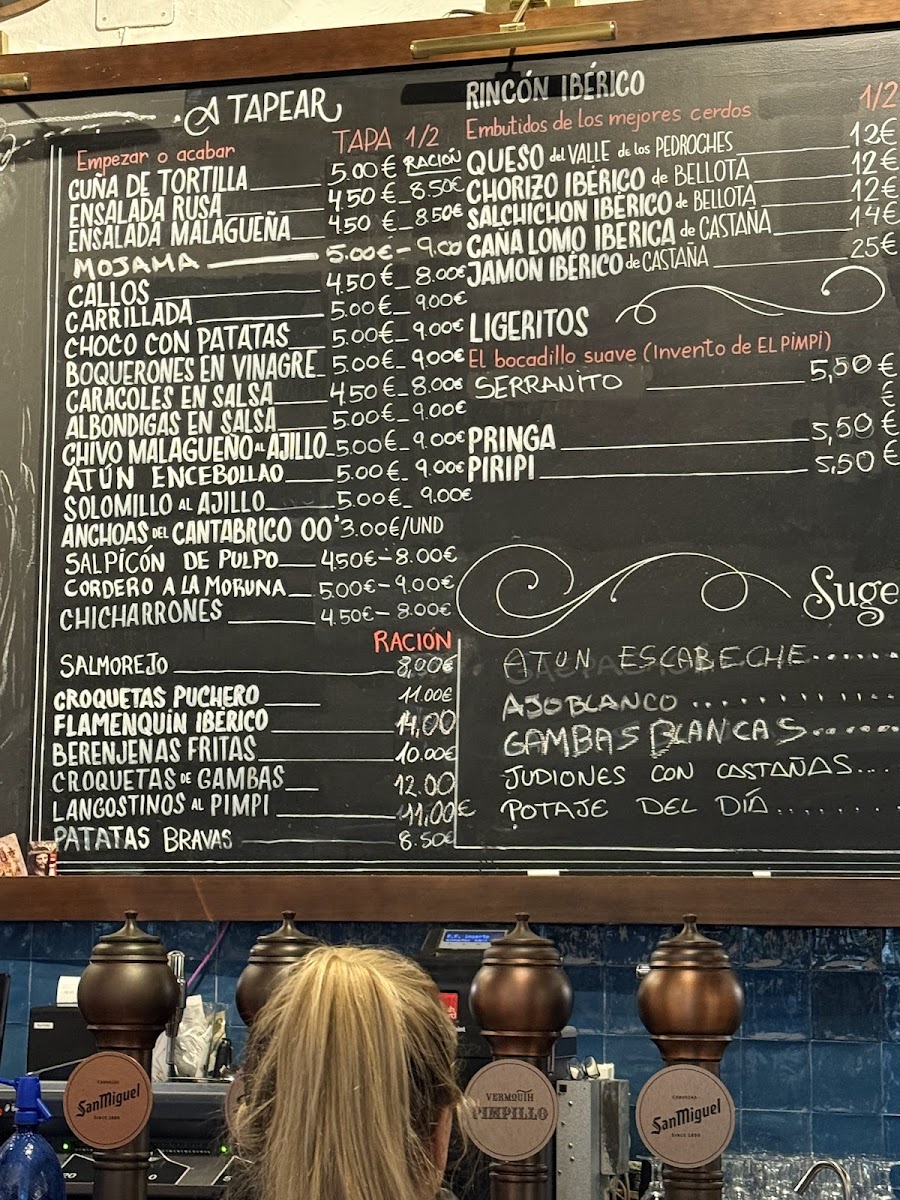 A TAPEAR
Empezar o acabar TAPA 1/2 RACIÓN
CUÑA DE TORTILLA 5.00€
ENSALADA RUSA 4.50€ 8.50€
ENSALADA MALAGUEÑA 4.50€ 8.50€
MOJAMA 5.00€ - 9.00
CALLOS 4.50€ 8.00€
CARRILLADA 5.00€ 9.00€
CHOCO CON PATATAS 5.00€ 9.00€
BOQUERONES EN VINAGRE 5.00€ 9.00€
CARACOLES EN SALSA 4.50€ 8.00€
ALBONDIGAS EN SALSA 5.00€ 9.00€
CHIVO MALAGUEÑO AL AJILLO 5.00€ 9.00€
ATÚN ENCEBOLLAO 5.00€ 9.00€
SOLOMILLO AL AJILLO 5.00€ 9.00€
ANCHOAS DEL CANTABRICO 00 3.00€/UND
SALPICÓN DE PULPO 4.50€ - 8.00€
CORDERO A LA MORUNA 5.00€ - 9.00€
CHICHARRONES 4.50€ - 8.00€
RACIÓN
SALMOREJO 8.00€
CROQUETAS PUCHERO 11.00€
FLAMENQUÍN IBÉRICO 14,00
BERENJENAS FRITAS 10.00€
CROQUETAS DE GAMBAS 12.00
LANGOSTINOS AL PIMPI 11,00€
PATATAS BRAVAS 8.50€
RINCÓN IBÉRICO
Embutidos de los mejores cerdos 1/2
QUESO del VALLE de los PEDROCHES 12€
CHORIZO IBÉRICO de BELLOTA 12€
SALCHICHON IBÉRICO de BELLOTA 12€
CAÑA LOMO IBERICA de CASTAÑA 14€
JAMON IBÉRICO de CASTAÑA 25€
LIGERITOS
El bocadillo suave (Invento de EL PIMPI)
SERRANITO 5,50€
€
PRINGA 5,50€
PIRIPI 5,50€
Suge
ATUN ESCABECHE
AJOBLANCO
GAMBAS BLANCAS
JUDIONES CON CASTAÑAS
POTAJE DEL DÍA
CERVEZAS
SanMiguel
SINCE 1890
VERMOUTH
PIMPILLO
CERVEZAS
SanMiguel
SINCE 1890